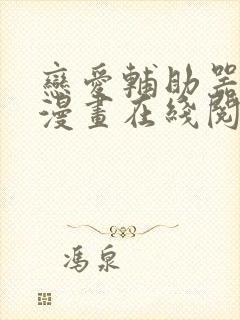 戀愛輔助器
漫畫在綫閱
馮泉